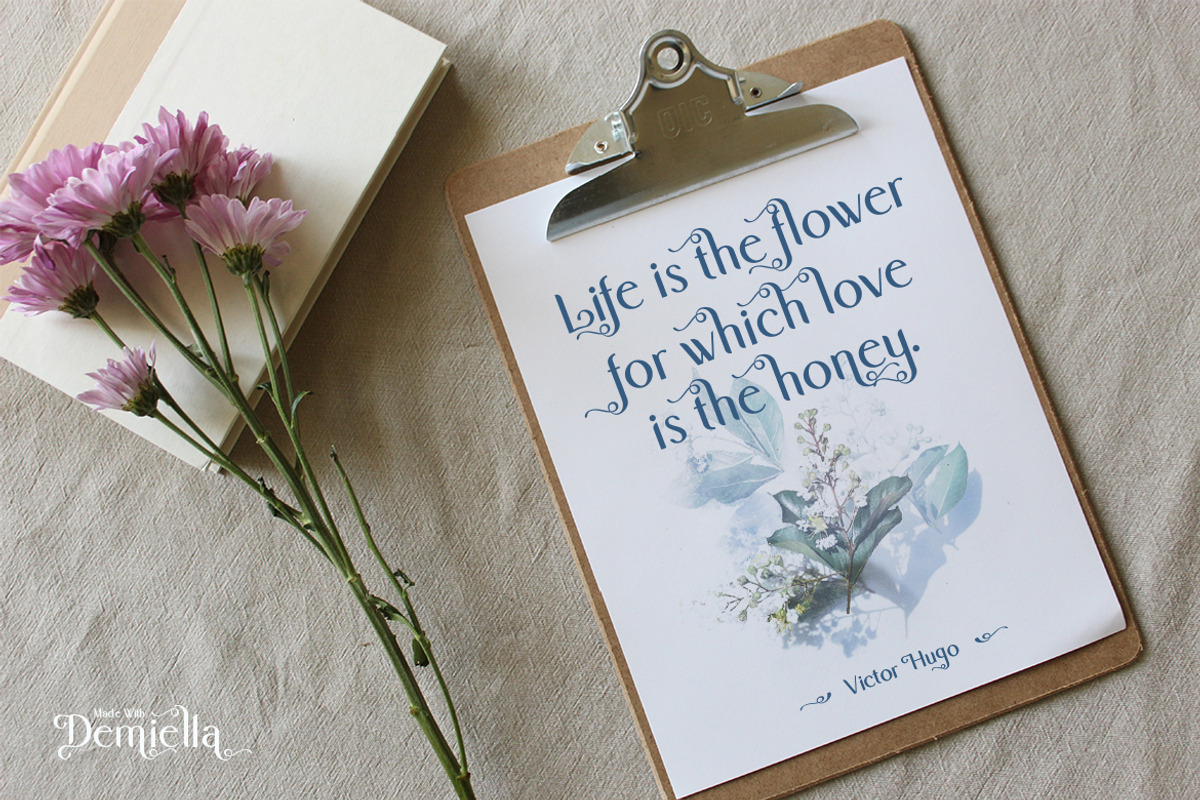 OIC
Life is the flower
for which love
is the honey.
Victor Hugo
Made With
Demiella